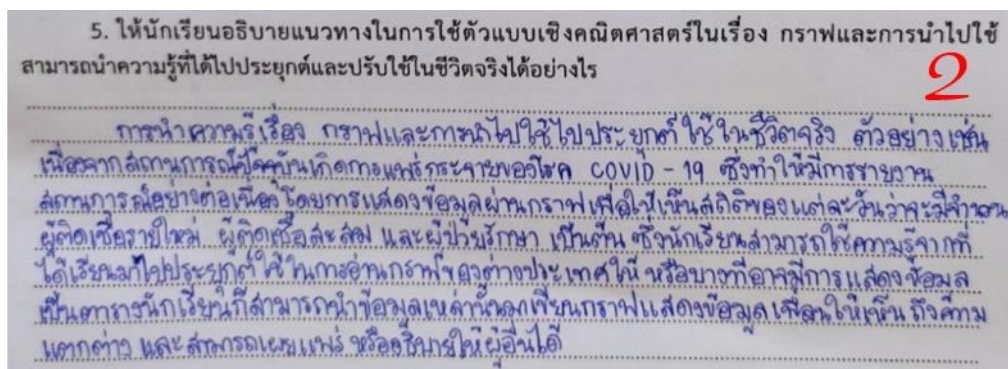 5. ให้นักเรียนอธิบายแนวทางในการใช้ตัวแบบเชิงคณิตศาสตร์ในเรื่อง กราฟและการนำไปใช้
สามารถนำความรู้ที่ได้ไปประยุกต์และปรับใช้ในชีวิตจริงได้อย่างไร
2
การนำความรู้เรื่อง กราฟและการนำไปใช้ไปประยุกต์ใช้ในชีวิตจริง ตัวอย่างเช่น
เนื่องจากสถานการณ์ปัจจุบันเกิดการแพร่กระจายของโรค COVID - 19 ซึ่งทำให้มีการรายงาน
สถานการณ์อย่างต่อเนื่องโดยการแสดงข้อมูลผ่านกราฟเพื่อให้เห็นสถิติของแต่ละวันว่าจะมีจำนวน
ผู้ติดเชื้อรายใหม่ ผู้ติดเชื้อสะสม และผู้ป่วยรักษา เป็นต้น ซึ่งนักเรียนสามารถใช้ความรู้จากที่
ได้เรียนมาไปประยุกต์ใช้ในการอ่านกราฟของต่างประเทศได้ หรือบางทีอาจมีการแสดงข้อมูล
เป็นตารางนักเรียนก็สามารถนำข้อมูลเหล่านั้นมาเขียนกราฟแสดงข้อมูล เพื่อให้เห็น ถึงความ
แตกต่าง และสามารถเผยแพร่ หรืออธิบายให้ผู้อื่นได้